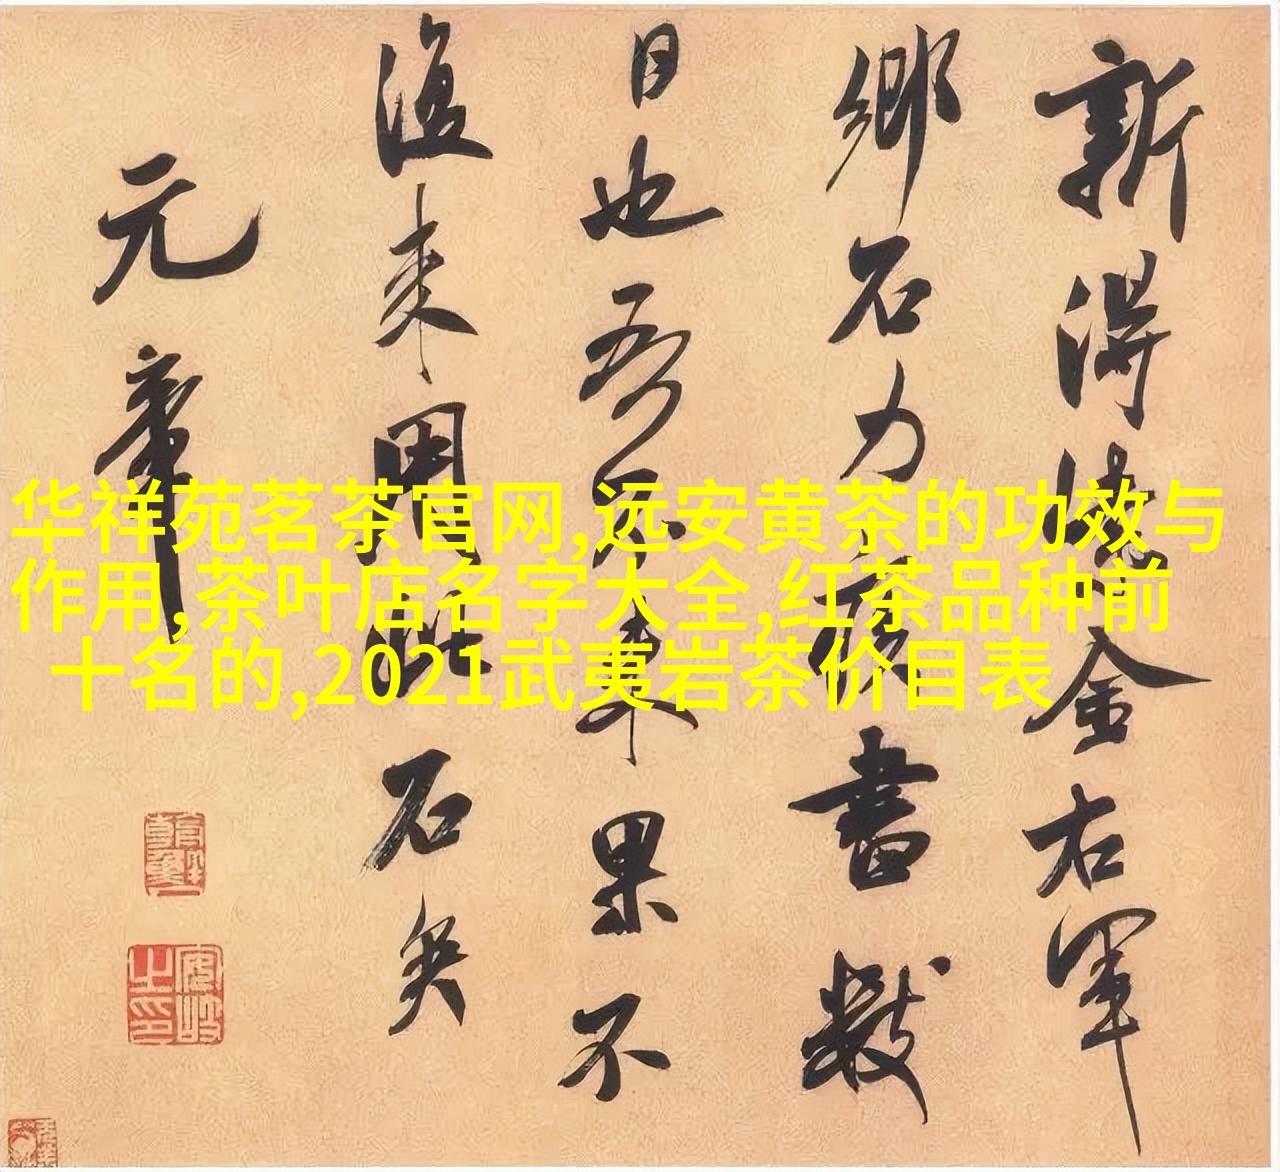 新得紫金右軍
鄉石力疾書數
日也吾不来果不
復来用此石矣
元章
华祥苑茗茶官网,远安黄茶的功效与
作用,茶叶店名字大全,红茶品种前
十名的,2021武夷岩茶价目表